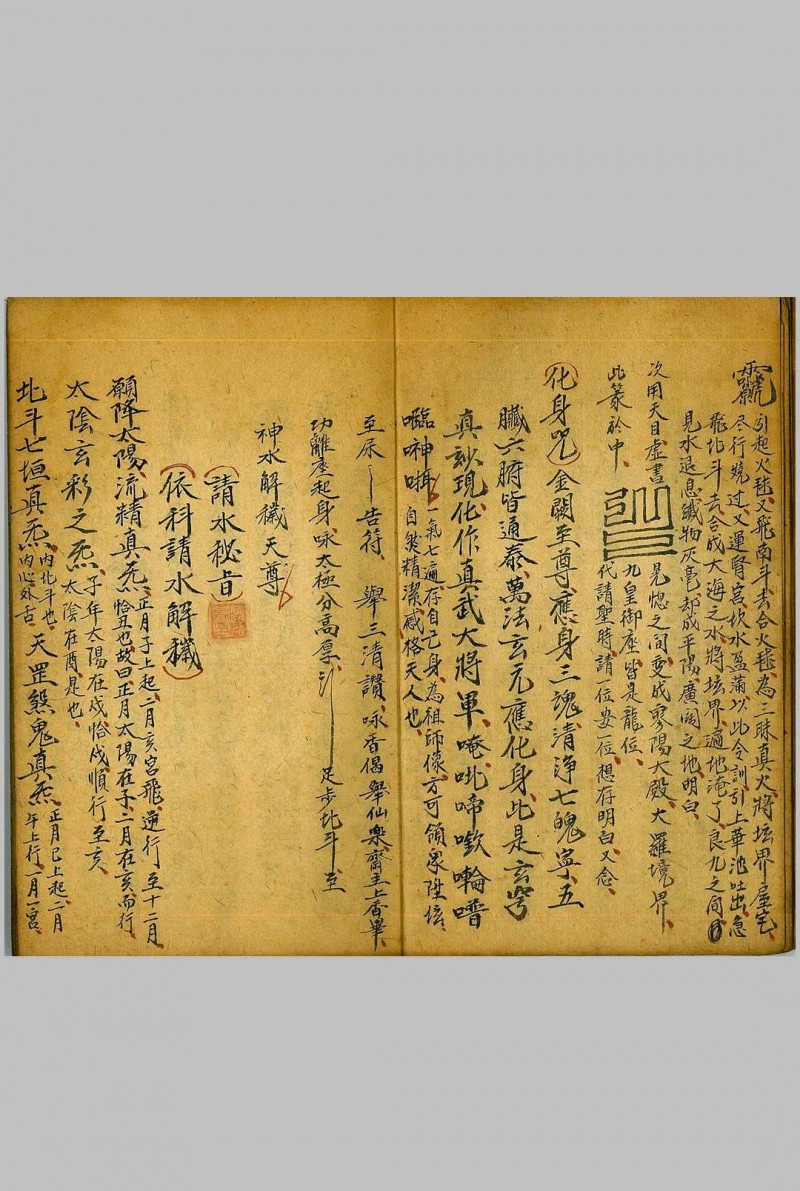 引起火毬、又飛南斗去合火毬、為三昧真火、將坛界屋宅、
尽行燒过、又運腎宮坎水盈蒲、以此令訓引上華池吐出、急
飛北斗去合成大海之水、將坛界遍地淹了、良久之間、
見水退息、纖物灰毫、却成平陽廣闊之地、明白、
次用天目虛書
見惚之間、变成寥陽大殿、大羅境界、
此篆於中、
九皇御座、皆是龍位、
代請聖時、請一位安一位、想存明白、又念、
化身咒 金闕至尊、應身三魂清净、七魄寧、五
臟六腑皆通泰、萬法玄元應化身、此是玄穹
真妙現、化作真武大將軍、唵吡啼㘕
一氣七遍、存自己身、為祖師像、方可領眾陞坛、
自然精潔、感格天人也、
至尿 告符、 舉三清讚、咏香偈、舉仙樂、齋主上香畢、
功離座起身、咏太極分高厚 足步北斗至
神水解穢天尊
請水秘旨
依科請水解穢
願降太陽、流精真炁、
正月子上起、二月亥宮飛、逆行至十二月
恰丑也、故曰正月太陽在子、二月在亥、而行、
太陰玄彩之炁、
子年太陽在戍、恰戍順行至亥、
太陰在酉是也、
北斗七垣真炁、
內北斗也、
內心外舌、
天罡煞鬼真炁、
正月巳上起、二月
午上行、一月一宮、